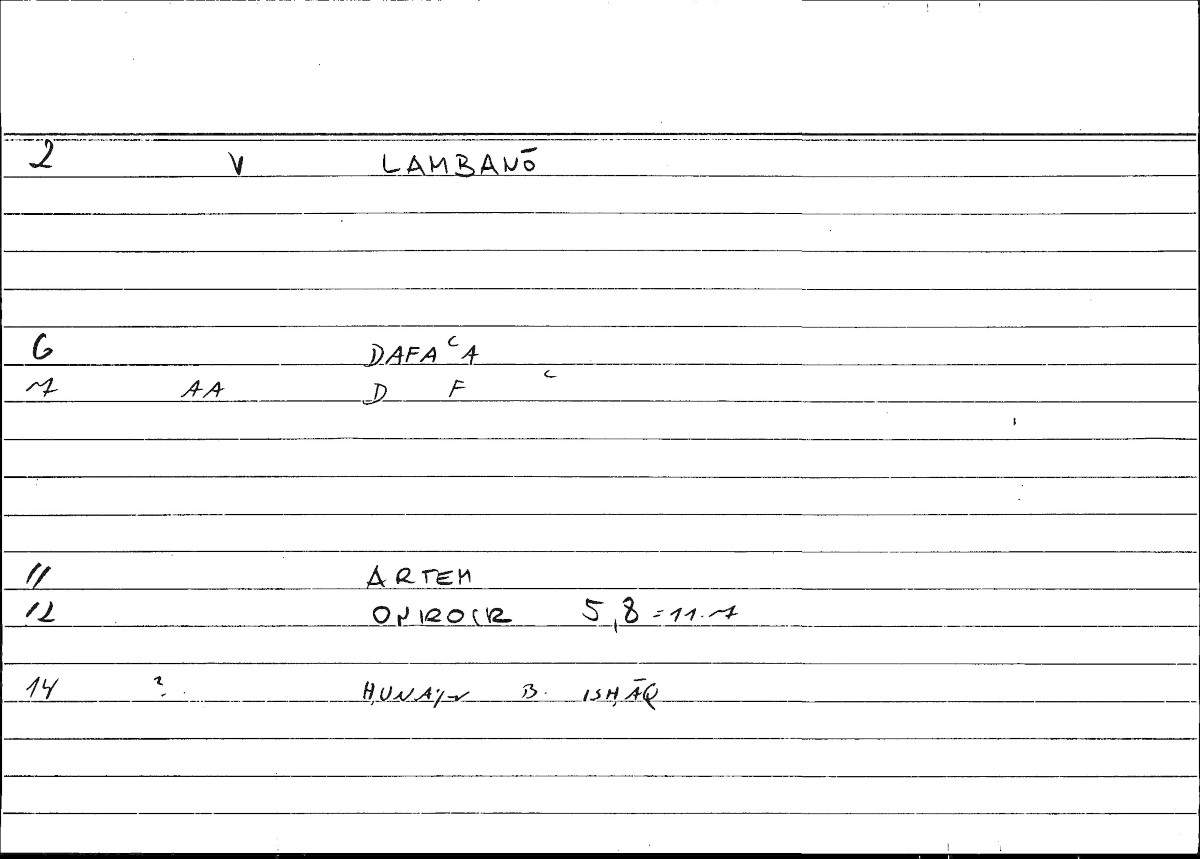 2 V LAMBANŌ
6 DAFAʿA
7 AA D F ʿ
11 ARTEM
12 ONIROCR 5,8 = 11.7
14 ? ḤUNAYN B. ISḤĀQ